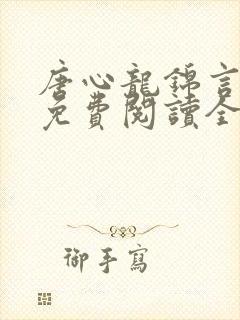 唐心龍錦言
免費閱讀全
御手寫